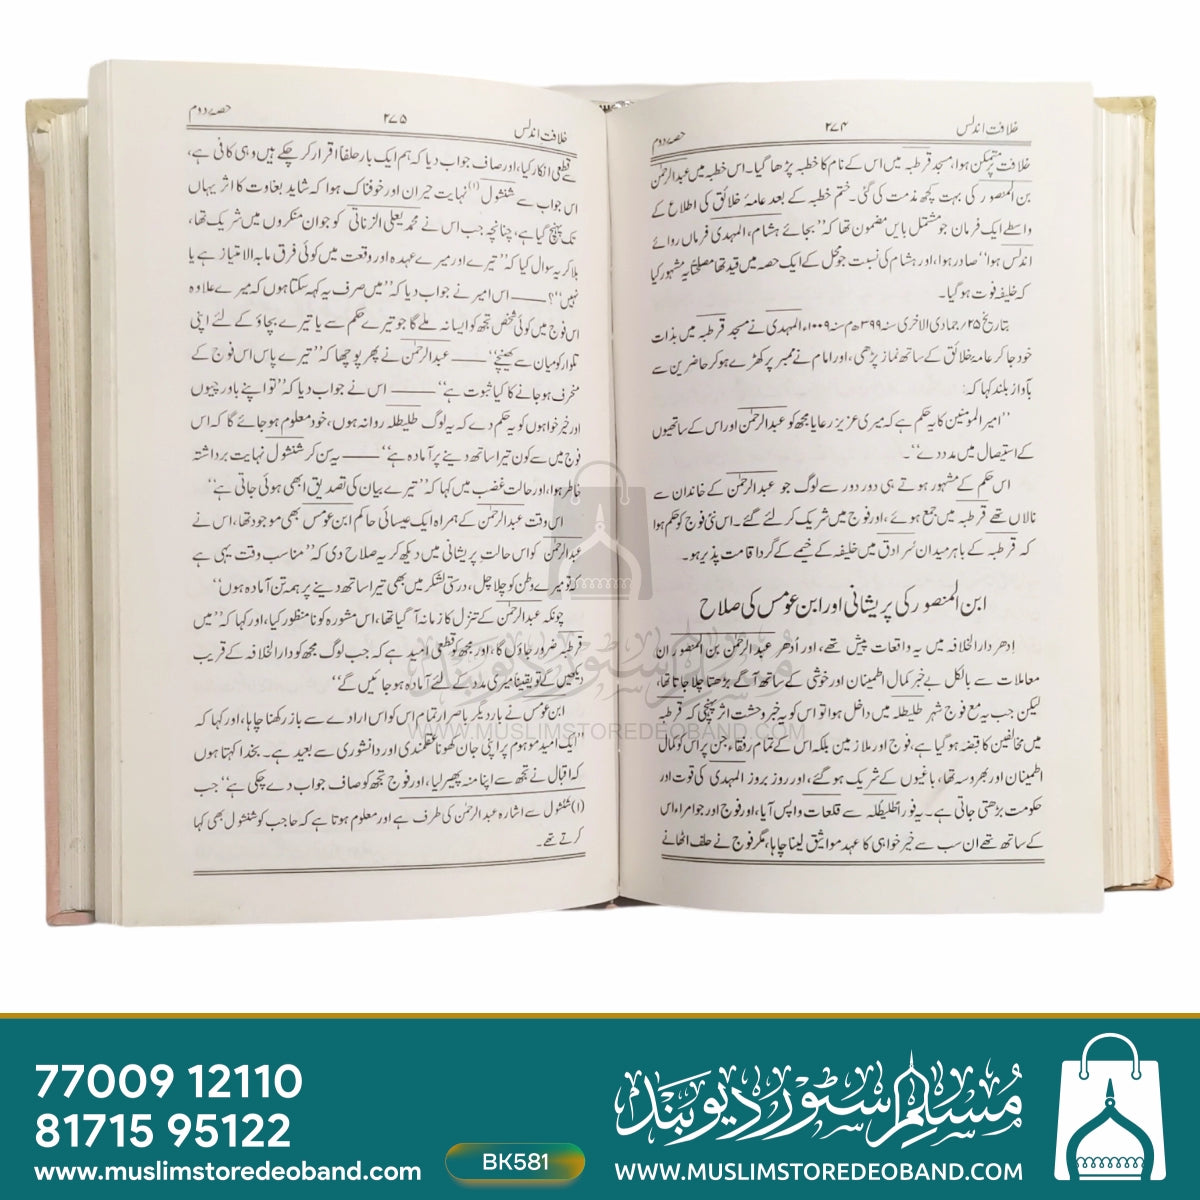 خلافت اندلس ۲۷۴ حصہ دوم
خلافت پر متمکن ہوا، مسجد قرطبہ میں اس کے نام کا خطبہ پڑھا گیا۔ اس خطبہ میں عبدالرحمٰن
بن المنصور کی بہت کچھ مذمت کی گئی۔ ختم خطبہ کے بعد عامۂ خلائق کی اطلاع کے
واسطے ایک فرمان جو مشتمل بایں مضمون تھا کہ "بجائے ہشام، المہدی فرماں روائے
اندلس ہوا" صادر ہوا، اور ہشام کی نسبت جو محل کے ایک حصہ میں قید تھا مصلحتاً یہ مشہور کیا
کہ خلیفہ فوت ہو گیا۔
بتاریخ ۲۵/جمادی الاخری سنہ ۳۹۹ھ م سنہ ۱۰۰۹ء المہدی نے مسجد قرطبہ میں بذات
خود جا کر عامۂ خلائق کے ساتھ نماز پڑھی، اور امام نے ممبر پر کھڑے ہو کر حاضرین سے
بآواز بلند کہا کہ:
"امیر المومنین کا یہ حکم ہے کہ میری عزیز رعایا مجھ کو عبدالرحمٰن اور اس کے ساتھیوں
کے استیصال میں مدد دے"۔
اس حکم کے مشہور ہوتے ہی دور دور سے لوگ جو عبدالرحمٰن کے خاندان سے
نالاں تھے قرطبہ میں جمع ہوئے، اور فوج میں شریک کر لئے گئے۔ اس نئی فوج کو حکم ہوا
کہ قرطبہ کے باہر میدان سُرادق میں خلیفہ کے خیمے کے گرد اقامت پذیر ہو۔
ابن المنصور کی پریشانی اور ابن عومس کی صلاح
اِدھر دار الخلافہ میں یہ واقعات پیش تھے، اور اُدھر عبدالرحمٰن بن المنصور ان
معاملات سے بالکل بے خبر کمال اطمینان اور خوشی کے ساتھ آگے بڑھتا چلا جاتا تھا،
لیکن جب یہ مع فوج شہر طلیطلہ میں داخل ہوا تو اس کو یہ خبر وحشت اثر پہنچی کہ قرطبہ
میں مخالفین کا قبضہ ہو گیا ہے، فوج اور ملازمین بلکہ اس کے تمام رفقاء جن پر اس کو کمال
اطمینان اور بھروسہ تھا، باغیوں کے شریک ہو گئے، اور روز بروز المہدی کی قوت اور
حکومت بڑھتی جاتی ہے۔ یہ فوراً طلیطلہ سے قلعات واپس آیا، اور فوج اور جو امراء اس
کے ساتھ تھے ان سب سے خیر خواہی کا عہد مواثیق لینا چاہا، مگر فوج نے حلف اٹھانے
خلافت اندلس ۲۷۵ حصہ دوم
سے قطعی انکار کیا، اور صاف جواب دیا کہ ہم ایک بار حلفاً اقرار کر چکے ہیں وہی کافی ہے،
اس جواب سے شنشول (۱) نہایت حیران اور خوفناک ہوا کہ شاید بغاوت کا اثر یہاں
تک پہنچ گیا ہے، چنانچہ جب اس نے محمد یعلی الزناتی کو جو ان منکروں میں شریک تھا،
بلا کر یہ سوال کیا کہ "تیرے اور میرے عہدہ اور وقعت میں کوئی فرق مابہ الامتیاز ہے یا
نہیں"؟ —— اس امیر نے جواب دیا کہ "میں صرف یہ کہہ سکتا ہوں کہ میرے علاوہ
اس فوج میں کوئی شخص تجھ کو ایسا نہ ملے گا جو تیرے حکم سے یا تیرے بچاؤ کے لئے اپنی
تلوار کو میان سے کھینچے" —— عبدالرحمٰن نے پھر پوچھا کہ "تیرے پاس اس فوج کے
منحرف ہو جانے کا کیا ثبوت ہے" —— اس نے جواب دیا کہ "تو اپنے باورچیوں
اور خیر خواہوں کو یہ حکم دے کہ یہ لوگ طلیطلہ روانہ ہوں، خود معلوم ہو جائے گا کہ اس
فوج میں سے کون تیرا ساتھ دینے پر آمادہ ہے" —— یہ سن کر شنشول نہایت برداشتہ
خاطر ہوا، اور حالت غضب میں کہا کہ "تیرے بیان کی تصدیق ابھی ہوئی جاتی ہے"
اس وقت عبدالرحمٰن کے ہمراہ ایک عیسائی حاکم ابن عومس بھی موجود تھا، اس نے
عبدالرحمٰن کو اس حالت پریشانی میں دیکھ کر یہ صلاح دی کہ "مناسب وقت یہی ہے
کہ تو میرے وطن کو چلا چل، درستی لشکر میں بھی تیرا ساتھ دینے پر ہمہ تن آمادہ ہوں"
چونکہ عبدالرحمٰن کے تنزل کا زمانہ آ گیا تھا، اس مشورہ کو نامنظور کیا، اور کہا کہ "میں
قرطبہ ضرور جاؤں گا، اور مجھ کو قطعی امید ہے کہ جب لوگ مجھ کو دار الخلافہ کے قریب
دیکھیں گے تو یقیناً میری مدد کے لئے آمادہ ہو جائیں گے"
ابن عومس نے بار دیگر باصرار تمام اس کو اس ارادے سے باز رکھنا چاہا، اور کہا کہ
"ایک امید موہوم پر اپنی جان کھونا عقلمندی اور دانشوری سے بعید ہے۔ بخدا کہتا ہوں
کہ اقبال نے تجھ سے اپنا منہ پھیر لیا، اور فوج تجھ کو صاف جواب دے چکی ہے" جب
(۱) شنشول سے اشارہ عبدالرحمٰن کی طرف ہے اور معلوم ہوتا ہے کہ حاجب کو شنشول بھی کہا
کرتے تھے۔
مسلم سٹور دیوبند
WWW.MUSLIMSTOREDEOBAND.COM
77009 12110
81715 95122
www.muslimstoredeoband.com
BK581
مسلم سٹور دیوبند
WWW.MUSLIMSTOREDEOBAND.COM